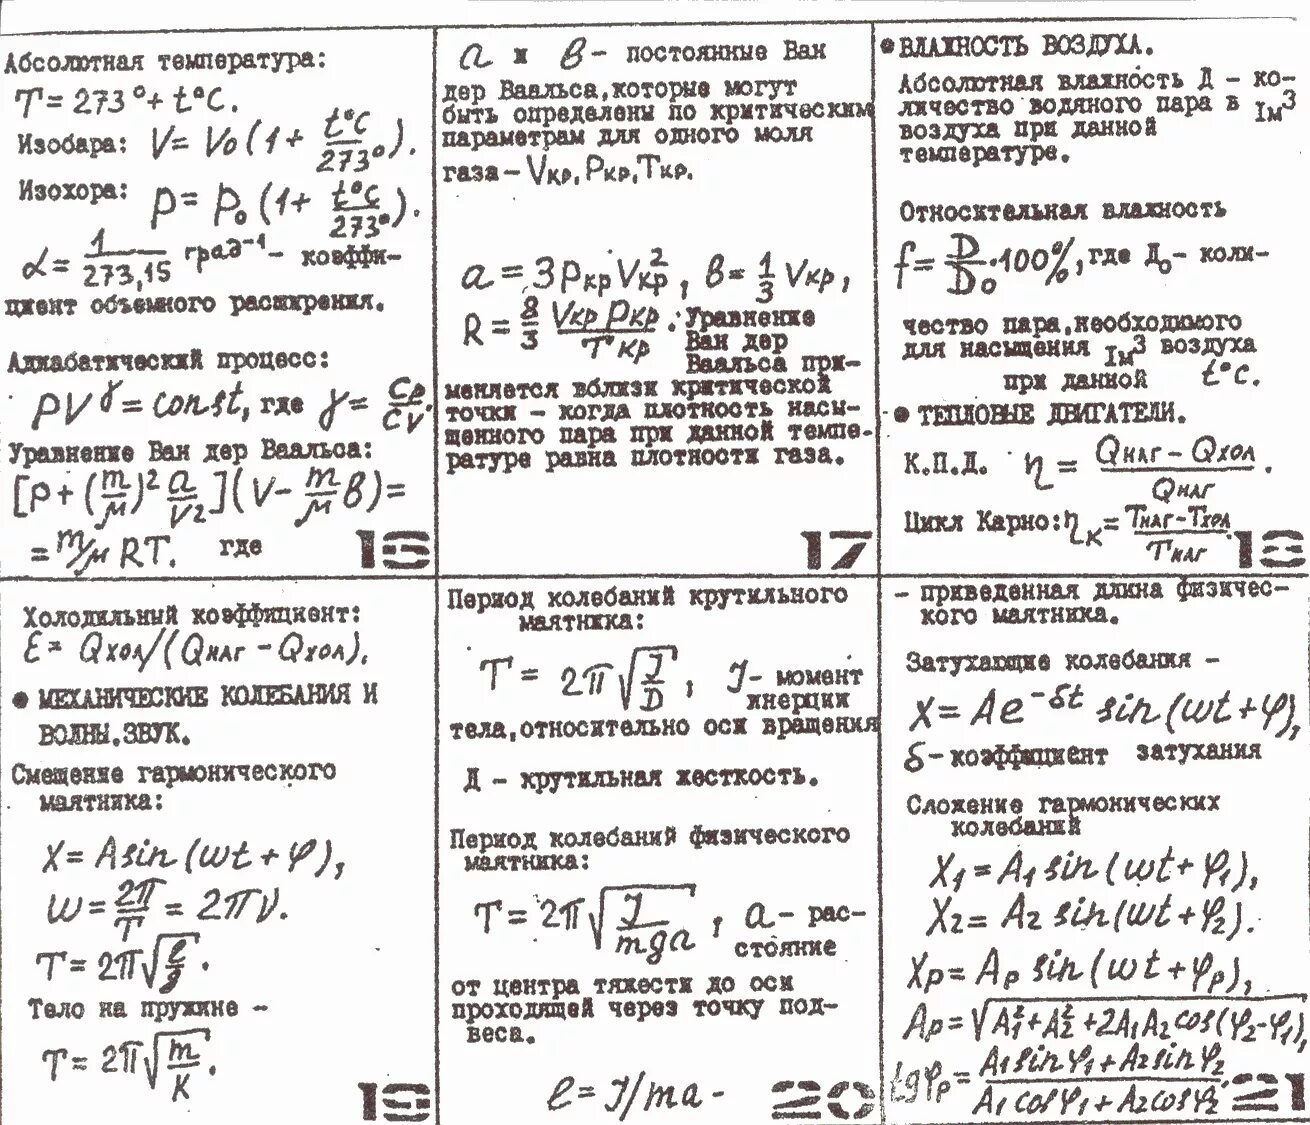 Абсолютная температура:
T = 273° + t°C.
Изобара: V = V₀(1 + t°C/273°).
Изохора: P = P₀(1 + t°C/273°).
α = 1/273,15 град⁻¹ – коэффи-
циент объемного расширения.
Адиабатический процесс:
PV^γ = const, где γ = Cp/Cv.
Уравнение Ван дер Ваальса:
[P + (m/μ)² a/V²](V – m/μ в) =
= m/μ RT. где
16
а и в – постоянные Ван
дер Ваальса, которые могут
быть определены по критическим
параметрам для одного моля
газа – Vкр, Ркр, Ткр.
a = 3PкрVкр², в = 1/3 Vкр,
R = 8/3 VкрPкр/Tкр. Уравнение
Ван дер
Ваальса при-
меняется вблизи критической
точки – когда плотность насы-
щенного пара при данной темпе-
ратуре равна плотности газа.
17
● ВЛАЖНОСТЬ ВОЗДУХА.
Абсолютная влажность Д – ко-
личество водяного пара в 1м³
воздуха при данной
температуре.
Относительная влажность
f = D/D₀·100%, где Д₀ – коли-
чество пара, необходимого
для насыщения 1м³ воздуха
при данной t°C.
● ТЕПЛОВЫЕ ДВИГАТЕЛИ.
К.П.Д. η = (Qнаг – Qхол)/Qнаг.
Цикл Карно: ηк = (Тнаг – Тхол)/Тнаг
18
Холодильный коэффициент:
ε = Qхол/(Qнаг – Qхол).
● МЕХАНИЧЕСКИЕ КОЛЕБАНИЯ И
ВОЛНЫ. ЗВУК.
Смещение гармонического
маятника:
X = A sin(ωt + φ),
ω = 2π/T = 2πν.
T = 2π√(l/g).
Тело на пружине –
T = 2π√(m/K).
19
Период колебаний крутильного
маятника:
T = 2π√(J/D), J – момент
инерции
тела, относительно оси вращения
Д – крутильная жесткость.
Период колебаний физического
маятника:
T = 2π√(J/mga), a – рас-
стояние
от центра тяжести до оси
проходящей через точку под-
веса.
l = J/ma –
20
– приведенная длина физичес-
кого маятника.
Затухающие колебания –
X = Ae^(–δt) sin(ωt + φ),
δ – коэффициент затухания
Сложение гармонических
колебаний
X₁ = A₁ sin(ωt + φ₁),
X₂ = A₂ sin(ωt + φ₂).
Xp = Ap sin(ωt + φp),
Ap = √(A₁² + A₂² + 2A₁A₂cos(φ₂ – φ₁)),
tgφp = (A₁sinφ₁ + A₂sinφ₂)/(A₁cosφ₁ + A₂cosφ₂).
21